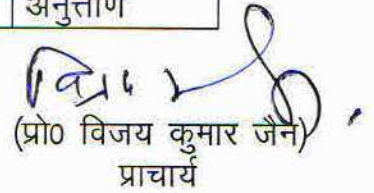 अनुत्तीर्ण
(प्रो0 विजय कुमार जैन)
प्राचार्य